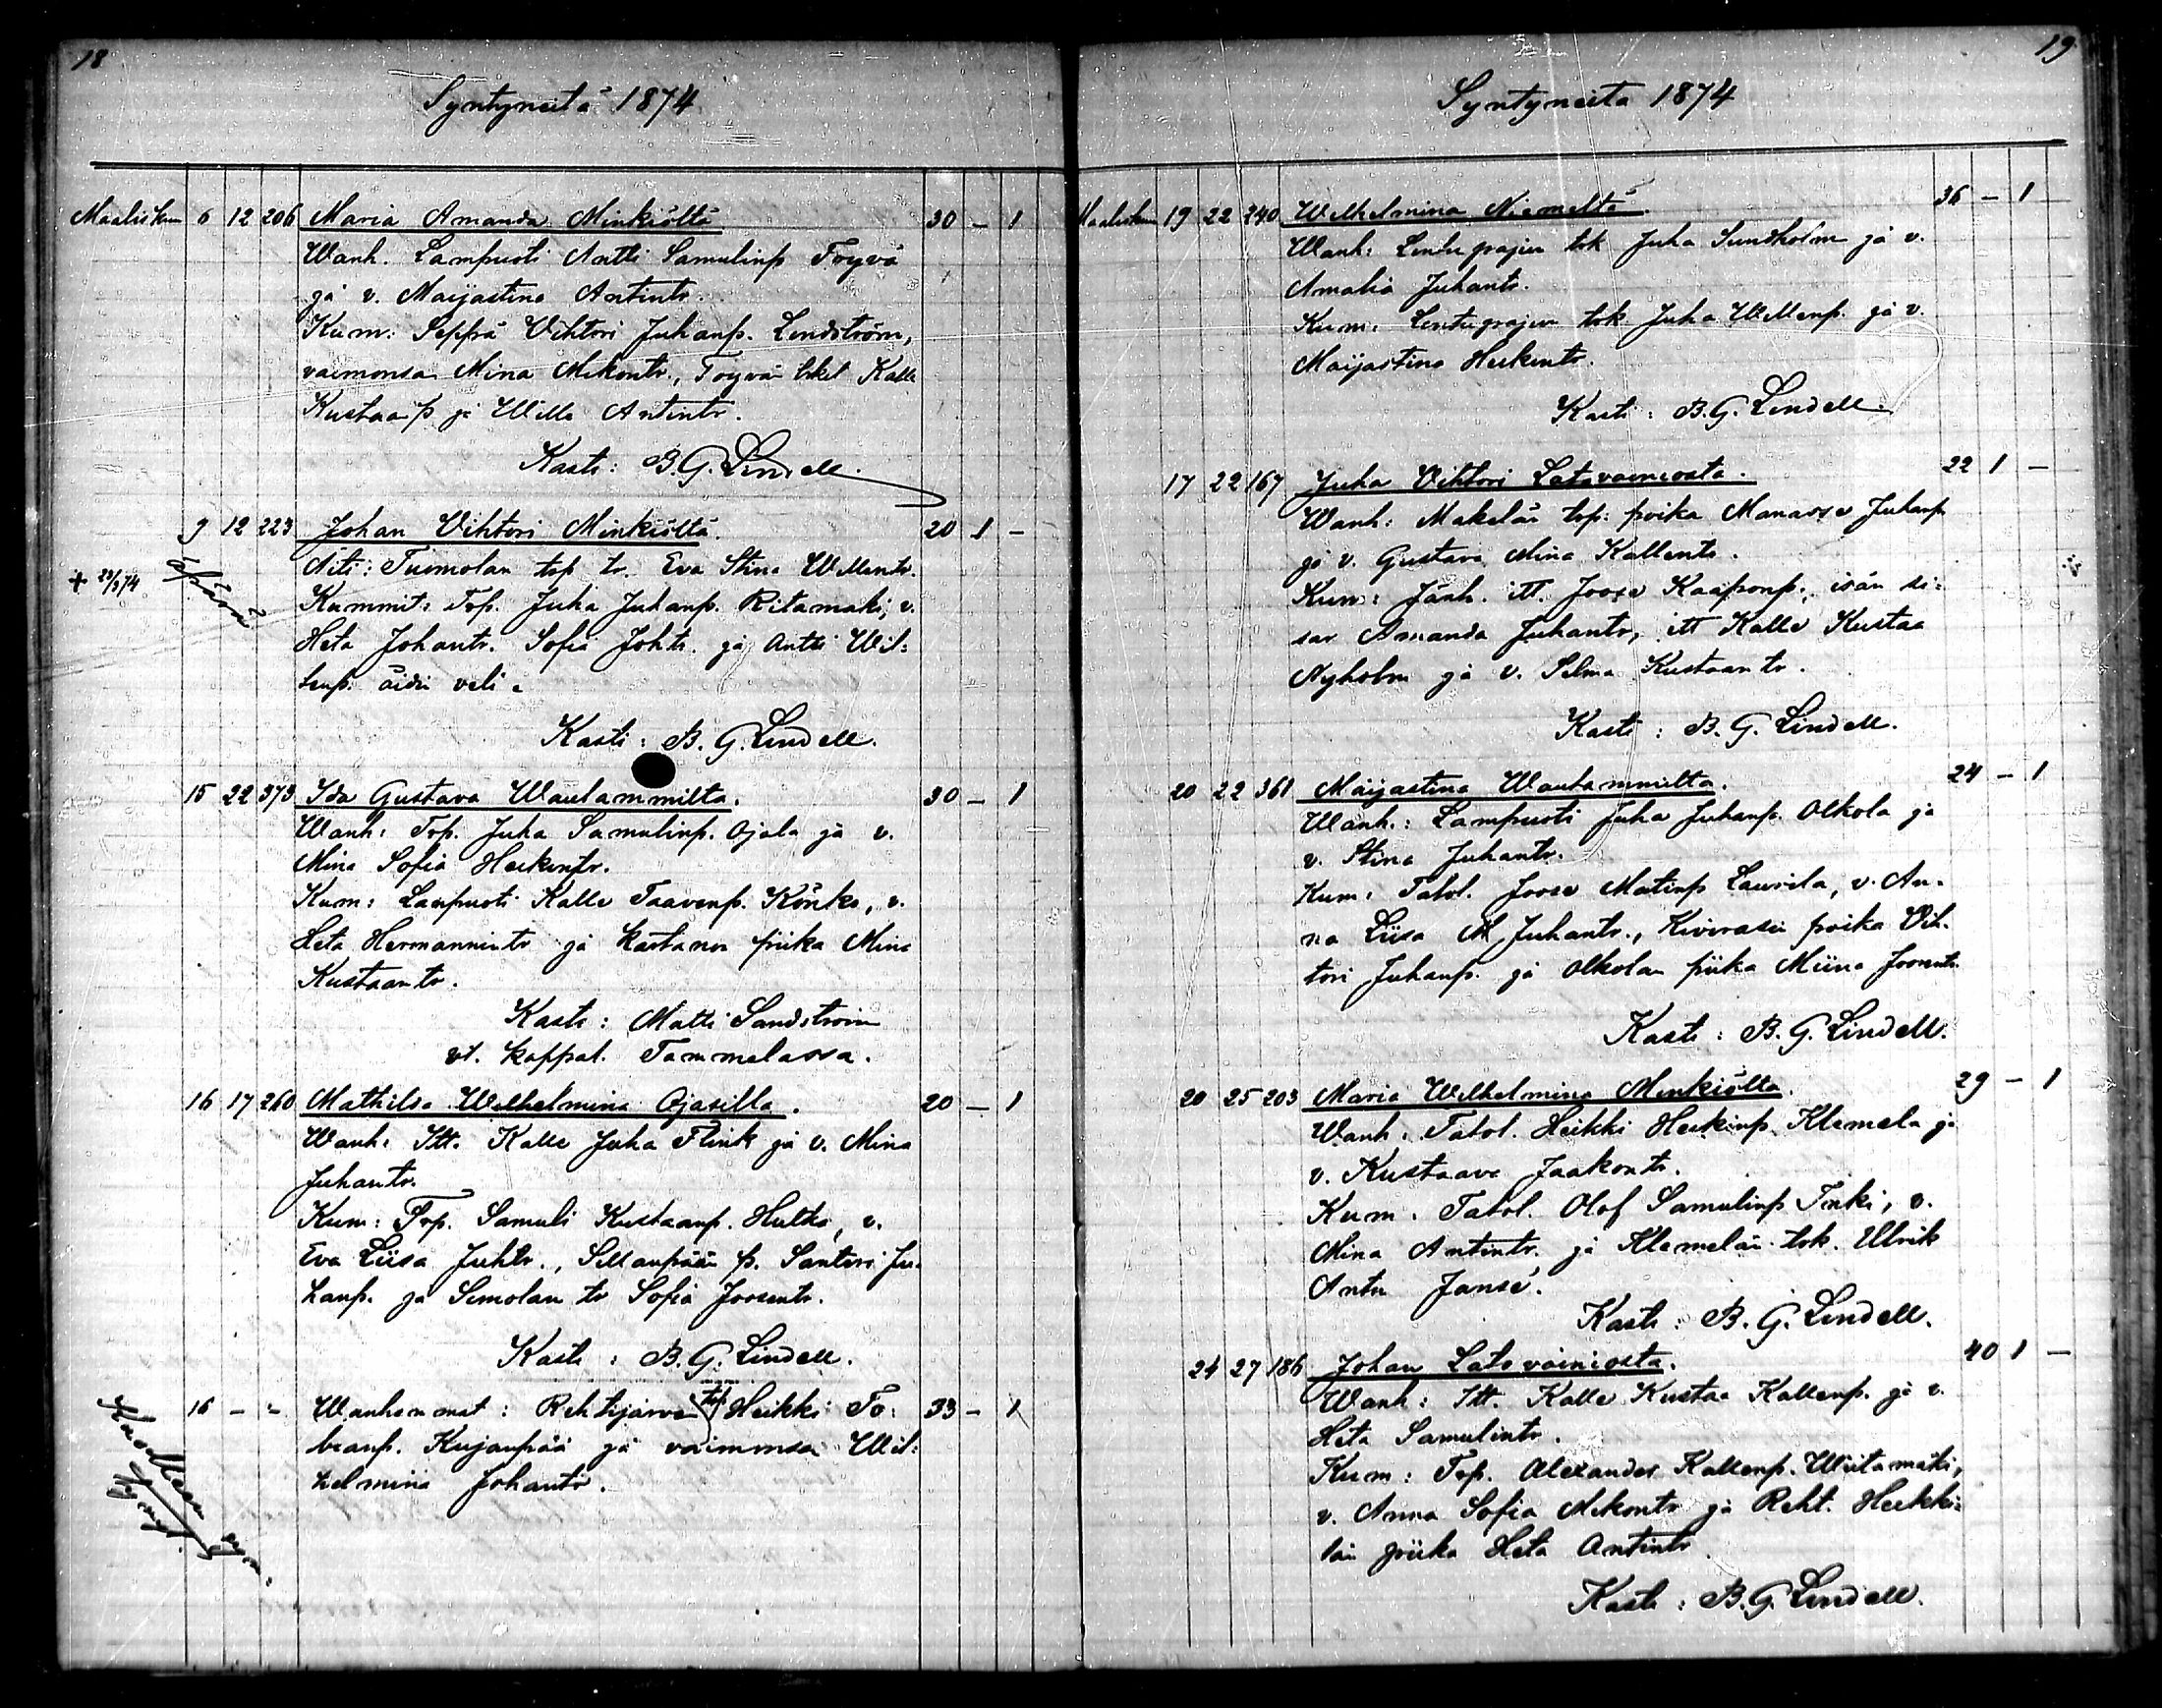 18
Syntyneitä 1874
Maaliskuu 6 12 206 Maria Amanda Minkiöltä 30 - 1
Wanh. Lampuoti Antti Samulinp Töyvä
ja v. Maijastina Antintr.
Kum: Seppä Vihtori Juhanp. Lindström,
vaimonsa Mina Mikontr., Töyvän lskel Kalle
Kustaap ja Willa Antintr.
Kasti: B. G. Lindell.
9 12 223 Johan Vihtori Minkiöltä. 20 1 -
+ 23/3 74 äpärä
Äiti: Tuomolan tsp tr. Eva Stina Willentr.
Kummit: Tsp. Juha Juhanp. Ritamäki, v.
Heta Johantr. Sofia Johtr. ja Antti Wil:
lenp. äidin veli.
Kasti: B. G. Lindell.
15 22 373 Ida Gustava Waulammilta. 30 - 1
Wanh: Tsp. Juha Samulinp. Ojala ja v.
Mina Sofia Heikintr.
Kum: Lampuoti Kalle Taavenp. Könkö, v.
Heta Hermannintr ja kartanon piika Mina
Kustaantr.
Kasti: Matti Sandström
vt. kappal. Tammelassa.
16 17 260 Mathilda Wilhelmina Ojasilla. 20 - 1
Wanh: Itt. Kalle Juha Flink ja v. Mina
Juhantr.
Kum: Tsp. Samuli Kustaanp. Hulko, v.
Eva Liisa Juhtr., Sillanpään p. Santeri Ju-
hanp. ja Simolan tr Sofia Joosentr.
Kasti: B. G. Lindell.
16 - - Wanhemmat: Rehtijärven tsp. Heikki To: 33 - 1
Kuolleen synn.
bianp. Kujanpää ja vaimonsa Wil:
helmina Johantr.
19
Syntyneitä 1874
Maaliskuu 19 22 240 Wilhelmina Niemeltä. 36 - 1
Wanh: Lintupajun tok Juha Sundholm ja v.
Amalia Juhantr.
Kum: Lintupajun tok Juha Willenp. ja v.
Maijastina Heikintr.
Kasti: B. G. Lindell.
17 22 167 Juha Vihtori Latovainiosta. 22 1 -
Wanh: Mäkelän tsp: poika Manasse Juhanp
ja v. Gustava Mina Kallentr.
Kum: Jänh. itt. Joose Kaaponp., isän si:
sar Amanda Juhantr, itt Kalle Kustaa
Nyholm ja v. Selma Kustaantr.
Kasti: B. G. Lindell.
20 22 361 Maijastina Waulammilta. 24 - 1
Wanh.: Lampuoti Juha Juhanp. Olkola ja
v. Stina Juhantr.
Kum: Talol. Joose Matinp Laurila, v. An-
na Liisa M Juhantr., Kivirasin poika Vih-
tori Juhanp. ja Olkolan piika Miina Joosentr.
Kasti: B. G. Lindell.
20 25 203 Maria Wilhelmina Minkiöltä. 29 - 1
Wanh: Talol. Heikki Heikinp. Klemelä ja
v. Kustaava Jaakontr.
Kum: Talol. Olof Samulinp Tinki, v.
Mina Antintr, ja Klemelän tok. Ulrik
Antin Jansé.
Kasti: B. G. Lindell.
24 27 186 Johan Latovainiosta. 40 1 -
Wanh: Itt. Kalle Kustaa Kallenp. ja v.
Heta Samulintr.
Kum: Tsp. Alexander Kallenp. Wiitamäki,
v. Anna Sofia Mikontr ja Reht. Heikki-
län piika Heta Antintr.
Kasti: B. G. Lindell.